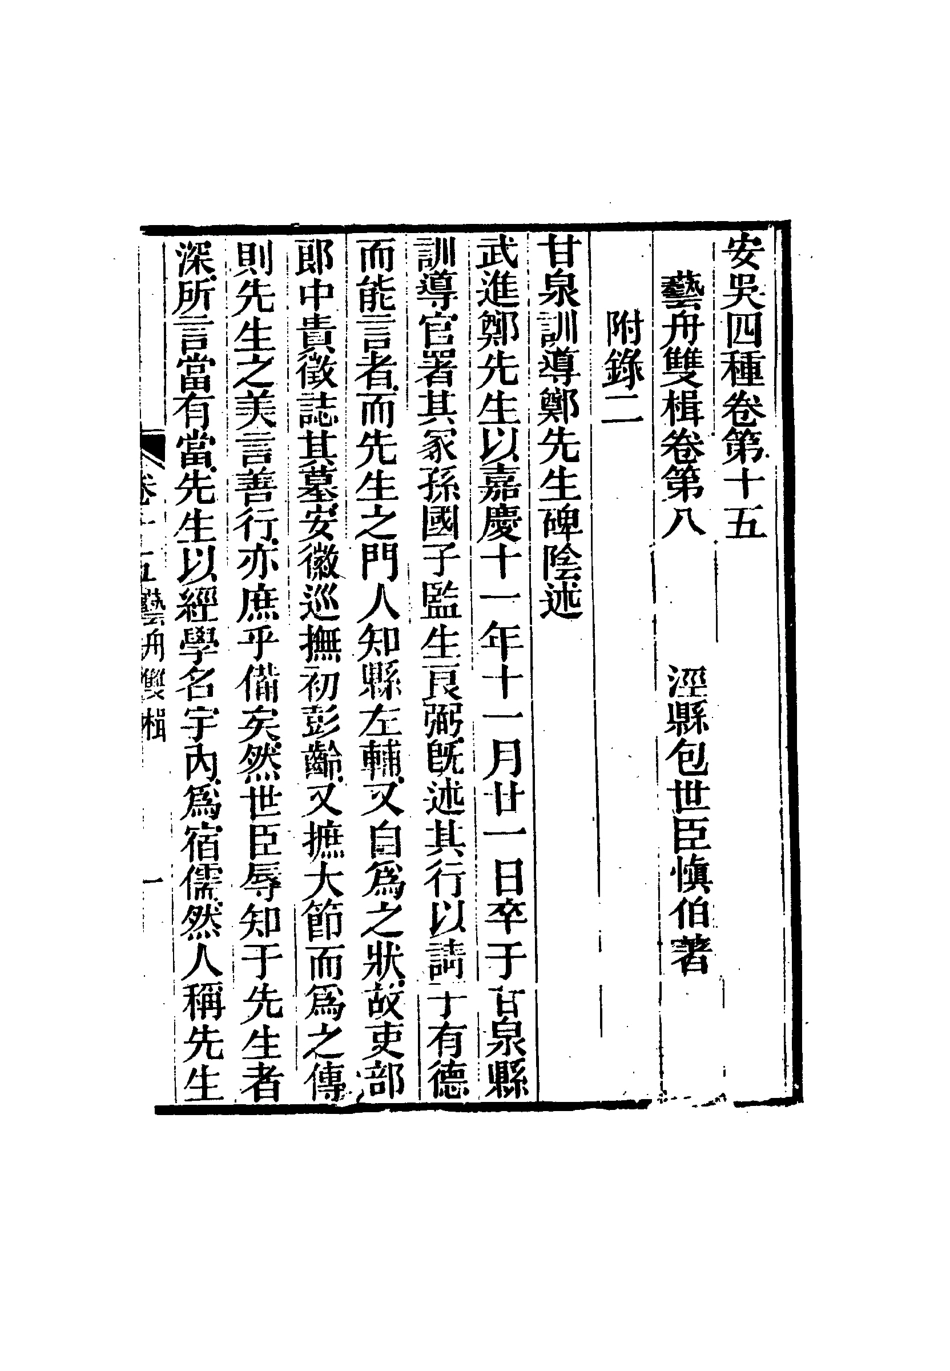 安吳四種卷第十五
藝舟雙楫卷第八　涇縣包世臣慎伯著
附錄二
甘泉訓導鄭先生碑陰述
武進鄭先生以嘉慶十一年十一月廿一日卒于甘泉縣
訓導官署其冢孫國子監生良弼既述其行以請于有德
而能言者而先生之門人知縣左輔又自爲之狀故吏部
郎中貴徵誌其墓安徽巡撫初彭齡又摭大節而爲之傳
則先生之美言善行亦庶乎備矣然世臣辱知于先生者
深所言當有當先生以經學名宇內爲宿儒然人稱先生
卷十五藝舟雙楫　一